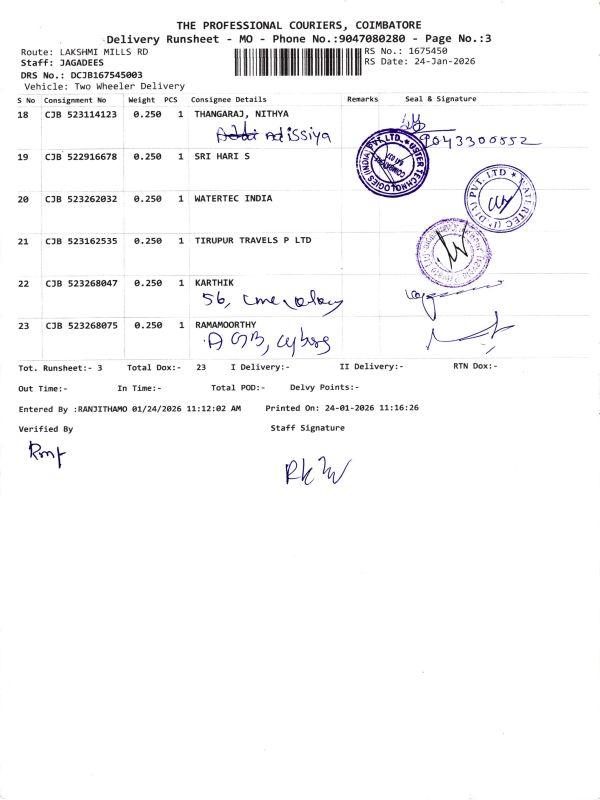 THE PROFESSIONAL COURIERS, COIMBATORE
Delivery Runsheet - MO - Phone No.:9047080280 - Page No.:3
Route: LAKSHMI MILLS RD RS No.: 1675450
Staff: JAGADEES RS Date: 24-Jan-2026
DRS No.: DCJB167545003
Vehicle: Two Wheeler Delivery
S No Consignment No Weight PCS Consignee Details Remarks Seal & Signature
18 CJB 523114123 0.250 1 THANGARAJ, NITHYA
Adissiya 9043300552
19 CJB 522916678 0.250 1 SRI HARI S
20 CJB 523262032 0.250 1 WATERTEC INDIA
21 CJB 523162535 0.250 1 TIRUPUR TRAVELS P LTD
22 CJB 523268047 0.250 1 KARTHIK
56,
23 CJB 523268075 0.250 1 RAMAMOORTHY
Tot. Runsheet:- 3 Total Dox:- 23 I Delivery:- II Delivery:- RTN Dox:-
Out Time:- In Time:- Total POD:- Delvy Points:-
Entered By :RANJITHAMO 01/24/2026 11:12:02 AM Printed On: 24-01-2026 11:16:26
Verified By Staff Signature